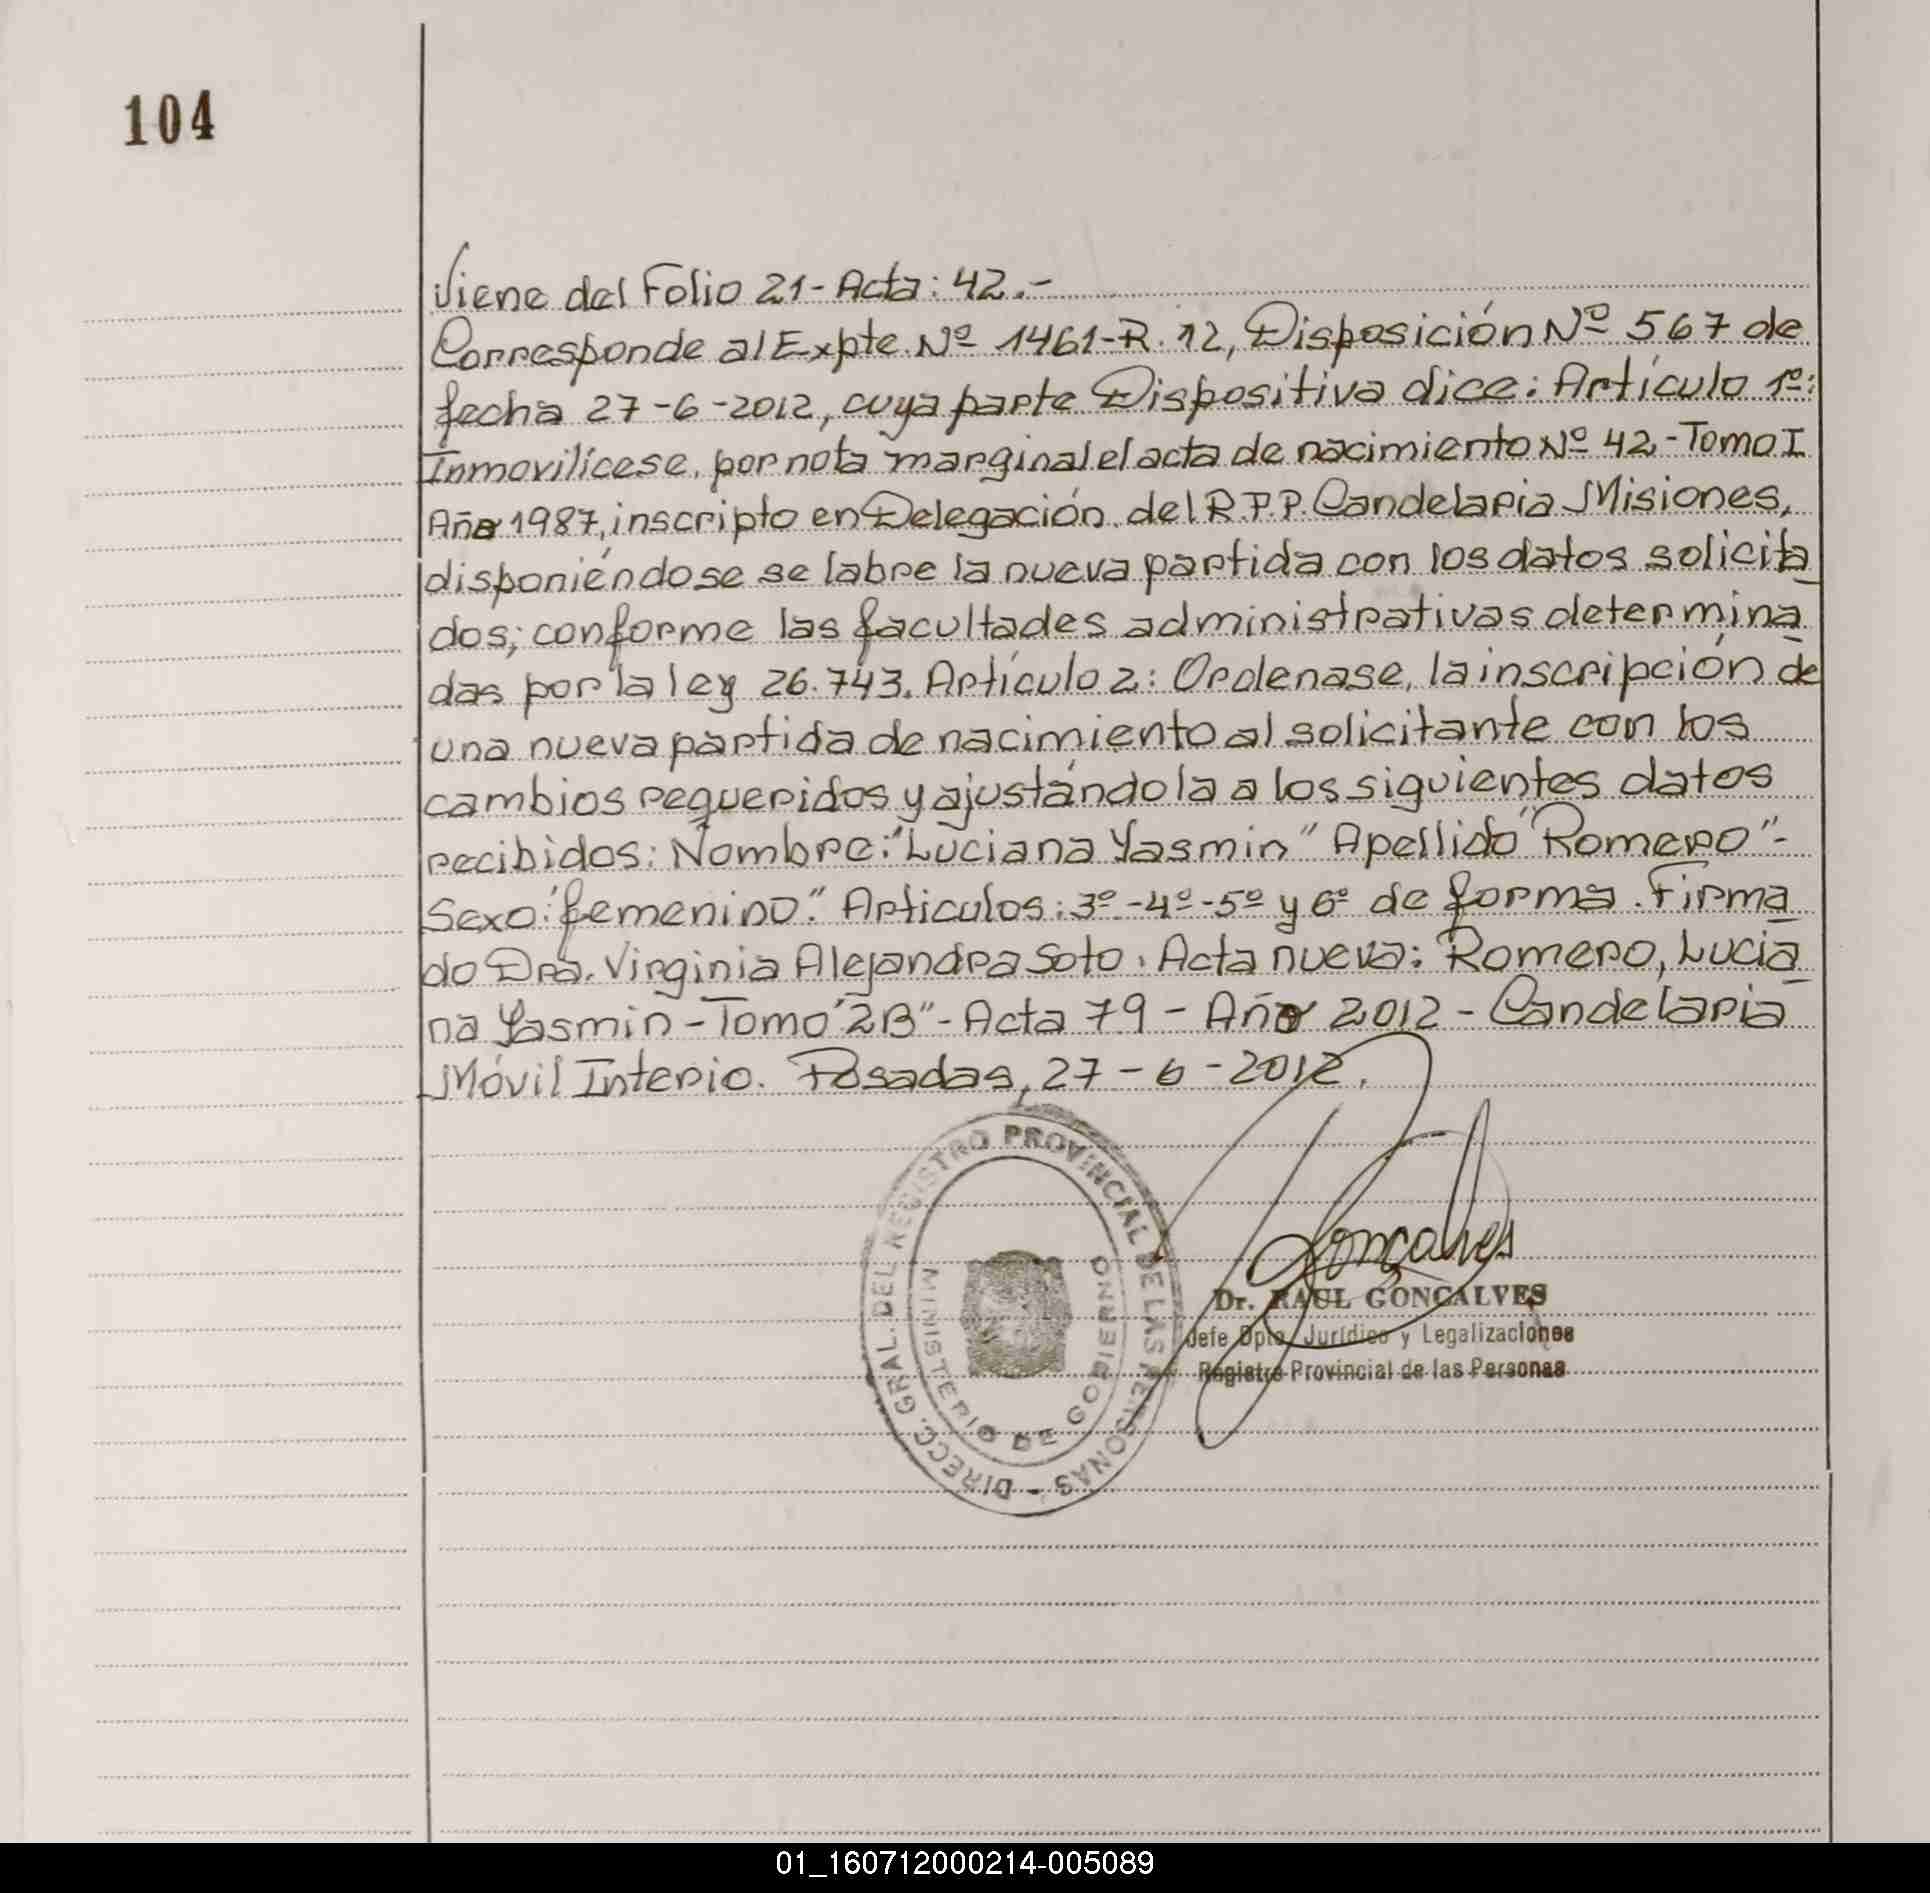 104
Viene del Folio 21 - Acta: 42.-
Corresponde al Expte. Nº 1461-R. 12, Disposición Nº 567 de
fecha 27-6-2012, cuya parte Dispositiva dice: Artículo 1º:
Inmovilícese, por nota marginal el acta de nacimiento Nº 42-Tomo I
Año 1987, inscripto en Delegación del R.P.P. Candelaria Misiones,
disponiéndose se labre la nueva partida con los datos solicita
dos; conforme las facultades administrativas determina
das por la ley 26.743. Artículo 2: Ordenase, la inscripción de
una nueva partida de nacimiento al solicitante con los
cambios requeridos y ajustándola a los siguientes datos
recibidos: Nombre: "Luciana Yasmin" Apellido "Romero"-
Sexo: "femenino". Articulos: 3º-4º-5º y 6º de forma. Firma
do Dra. Virginia Alejandra Soto. Acta nueva: Romero, Lucia
na Yasmin - Tomo "2B" - Acta 79 - Año 2012 - Candelaria
Móvil Interio. Posadas, 27-6-2012.
DIRECC. GRAL. DEL REGISTRO PROVINCIAL DE LAS PERSONAS -
MINISTERIO DE GOBIERNO
Gonçalves
Dr. RAUL GONÇALVES
Jefe Dpto. Jurídico y Legalizaciones
Registro Provincial de las Personas
01_160712000214-005089